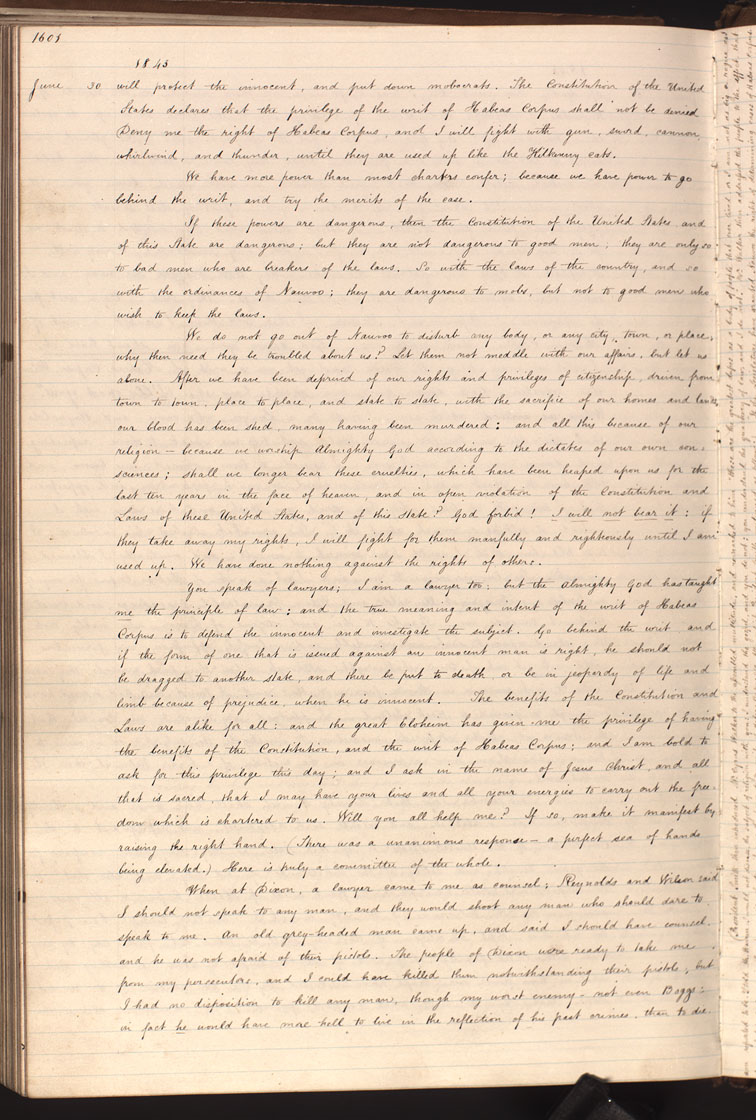 1601
1843
June 30 will protect the innocent, and put down mobocrats. The Constitution of the United
States declares that the privilege of the writ of Habeas Corpus shall not be denied
Deny me the right of Habeas Corpus, and I will fight with gun, sword, cannon,
whirlwind, and thunder, until they are used up like the Kilkenny cats.
We have more power than most charters confer; because we have power to go
behind the writ, and try the merits of the case.
If these powers are dangerous, then the Constitution of the United States, and
of this State are dangerous; but they are not dangerous to good men; they are only so
to bad men who are breakers of the laws. So with the laws of the country, and so
with the ordinances of Nauvoo; they are dangerous to mobs, but not to good men who
wish to keep the laws.
We do not go out of Nauvoo to disturb any body, or any city, town, or place,
why then need they be troubled about us? Let them not meddle with our affairs, but let us
alone. After we have been deprived of our rights and privileges of citizenship, driven from
town to town, place to place, and state to state, with the sacrifice of our homes and lands,
our blood has been shed, many having been murdered: and all this because of our
religion – because we worship Almighty God according to the dictates of our own con-
sciences; shall we longer bear these cruelties, which have been heaped upon us for the
last ten years in the face of heaven, and in open violation of the Constitution and
Laws of these United States, and of this state? God forbid! I will not bear it: if
they take away my rights, I will fight for them manfully and righteously until I am
used up. We have done nothing against the rights of others.
You speak of lawyers; I am a lawyer too: but the Almighty God has taught
me the principle of law: and the true meaning and intent of the writ of Habeas
Corpus is to defend the innocent and investigate the subject. Go behind the writ and
if the form of one that is issued against an innocent man is right, he should not
be dragged to another state, and there be put to death, or be in jeopardy of life and
limb because of prejudice, when he is innocent. The benefits of the Constitution and
Laws are alike for all: and the great Eloheim has given me the privilege of having
the benefits of the Constitution, and the writ of Habeas Corpus; and I am bold to
ask for this privilege this day; and I ask in the name of Jesus Christ, and all
that is sacred, that I may have your lives and all your energies to carry out the free-
dom which is chartered to us. Will you all help me? If so, make it manifest by
raising the right hand. (There was a unanimous response – a perfect sea of hands
being elevated.) Here is truly a committee of the whole.
When at Dixon, a lawyer came to me as counsel; Reynolds and Wilson said
I should not speak to any man, and they would shoot any man who should dare to
speak to me. An old grey-headed man came up, and said I should have counsel,
and he was not afraid of their pistols. The people of Dixon were ready to take me
from my persecutors, and I could have killed them notwithstanding their pistols, but
I had no disposition to kill any man, though my worst enemy – not even Boggs:
in fact he would have more hell to live in the reflection of his past crimes, than to die.